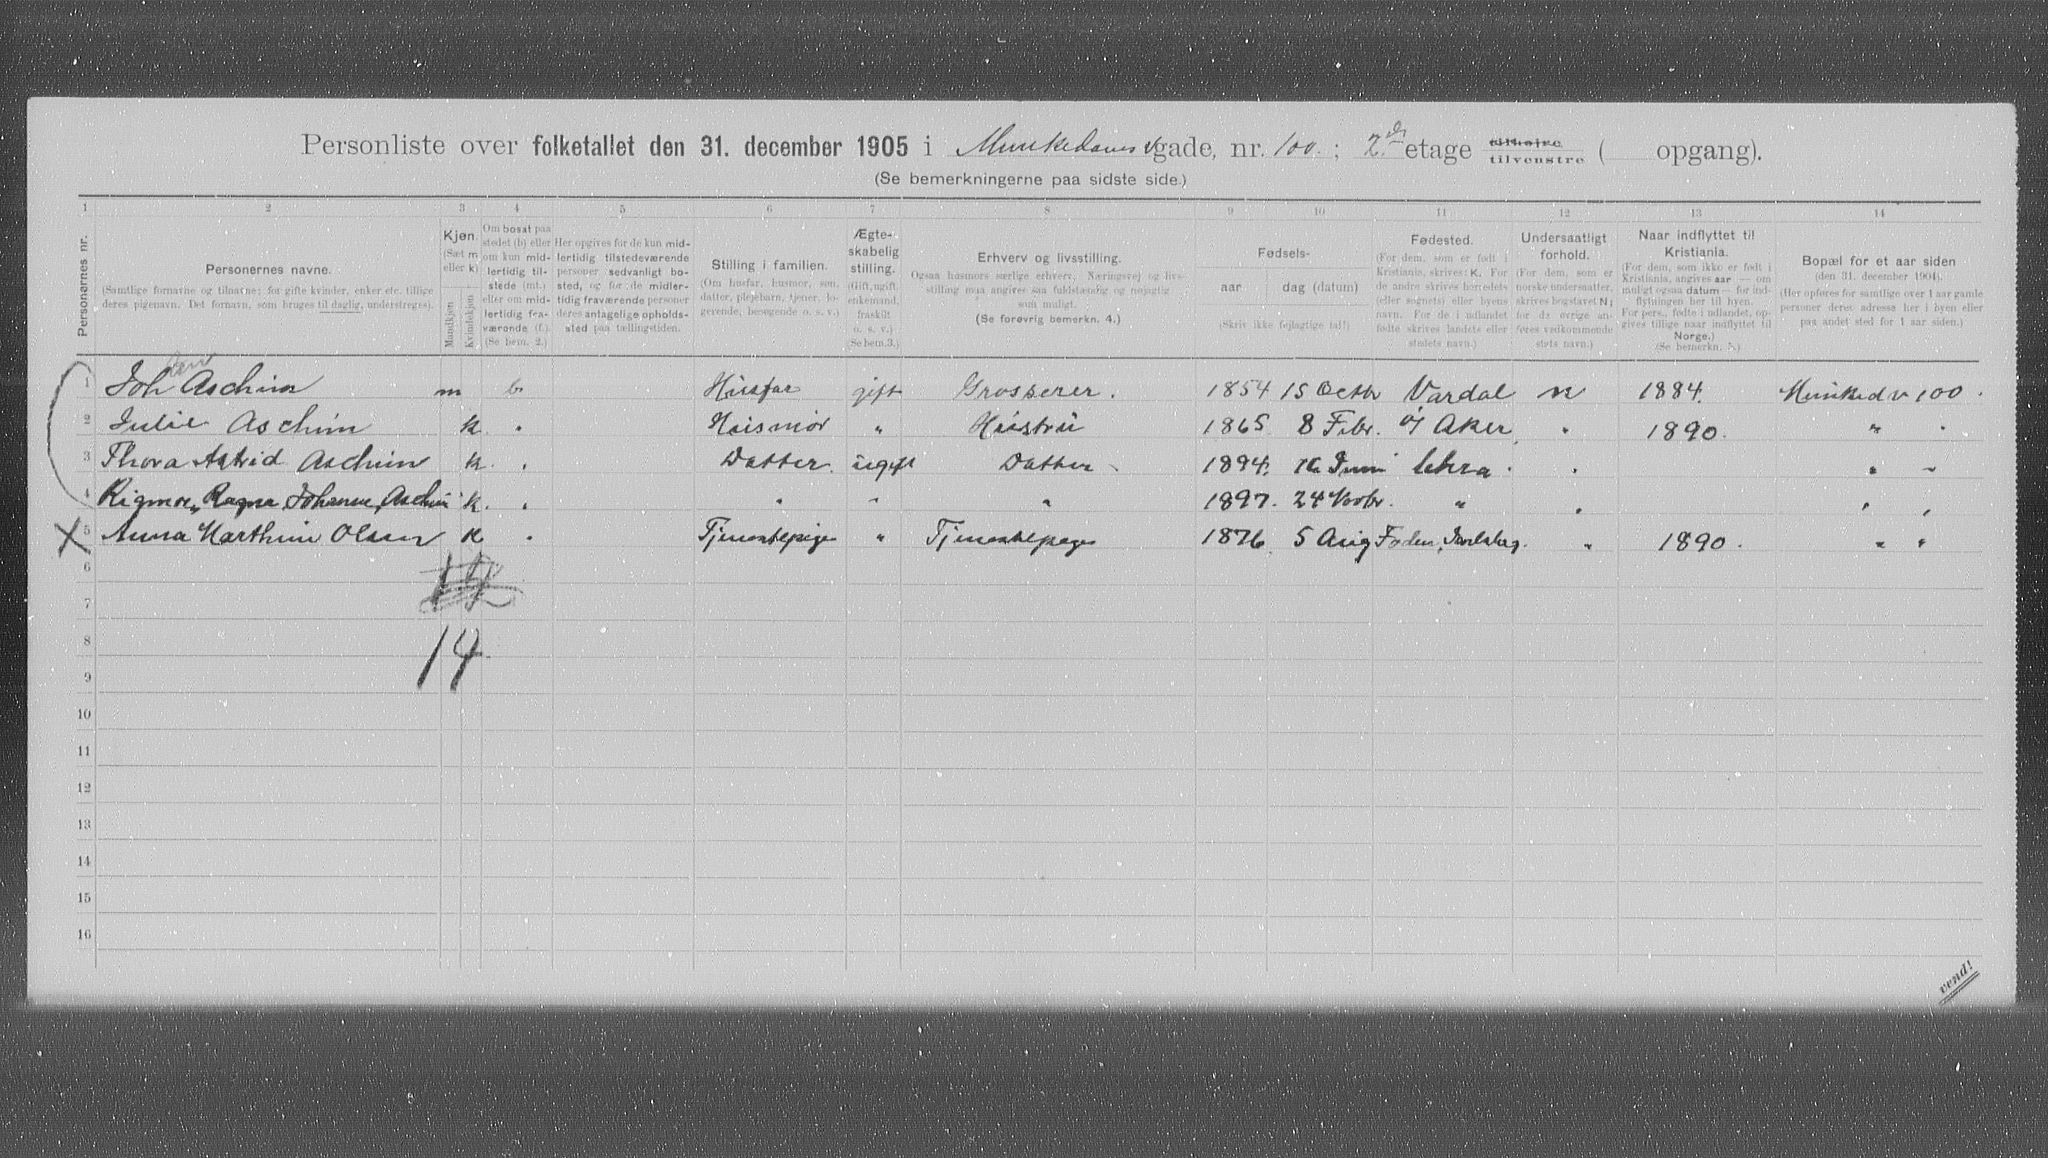 Personliste over folketallet den 31. december 1905 i Munkedams v gade, nr. 100. ; 2.den etage tilhøire tilvenstre ( opgang).
(Se bemerkningerne paa sidste side.)
1 2 3 4 5 6 7 8 9 10 11 12 13 14
Personernes nr.
Personernes navne.
(Samtlige fornavne og tilnavne; for gifte kvinder, enker etc. tillige deres pigenavn. Det fornavn, som bruges til daglig, understreges).
Kjøn.
(Sæt m eller k)
Mandkjøn
Kvindekjøn
Om bosat paa stedet (b) eller om kun midlertidig tilstede (mt.) eller om midlertidig fraværende (f.). (Se bem. 2.)
Her opgives for de kun midlertidig tilstedeværende personer sedvanligt bosted, og for de midlertidig fraværende personer deres antagelige opholdssted paa tællingstiden.
Stilling i familien.
(Om husfar, husmor, søn, datter, plejebarn, tjener, logerende, besøgende o. s. v.)
Ægteskabelig stilling.
(Gift, ugift, enkemand, fraskilt o. s. v.)
(Se bem. 3.)
Erhverv og livsstilling.
Ogsaa husmors særlige erhverv. Næringsvej og livsstilling maa angives saa fuldstændig og nøjagtig som muligt.
(Se forøvrig bemerkn. 4.)
Fødsels-
aar
dag (datum)
(Skriv ikke fejlagtige tal!)
Fødested.
(For dem, som er født i Kristiania, skrives: K. For de andre skrives herredets (eller sognets) eller byens navn. For de i udlandet fødte skrives landets eller stedets navn.)
Undersaatligt forhold.
(For dem, som er norske undersaatter, skrives bogstavet N; for de øvrige anføres vedkommende stats navn.)
Naar indflyttet til Kristiania.
(For dem, som ikke er født i Kristiania, angives aar — om muligt ogsaa datum — for indflytningen her til byen. For pers., fødte i udlandet, opgives tillige naar indflyttet til Norge.)
(Se bemerkn. 5.)
Bopæl for et aar siden
(den 31. december 1904).
(Her opføres for samtlige over 1 aar gamle personer deres adresse her i byen eller paa andet sted for 1 aar siden.)
1 Joh Aschim m b Husfar gift Grosserer. 1854 15 Octb Vardal n 1884. Munkedv 100.
2 Julie Aschim k. " Husmor " Hustru 1865. 8 Febr. Ø Aker " 1890. " "
3 Thora Astrid Aschim k. " Datter. ugift Datter 1894. Juni " " "
4 Rigmor Ragna Johanne Aschim k. " " " " 1897. 24 Novbr. " " " "
5 Anna Marthine Olsen k " Tjenestepige " Tjenestepige 1876. 5 Aug " 1890. " "
6
7
14
8
9
10
11
12
13
14
15
16
vend!